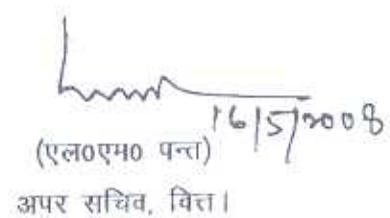 16/5/2008
(एल0एम0 पन्त)
अपर सचिव, वित्त।